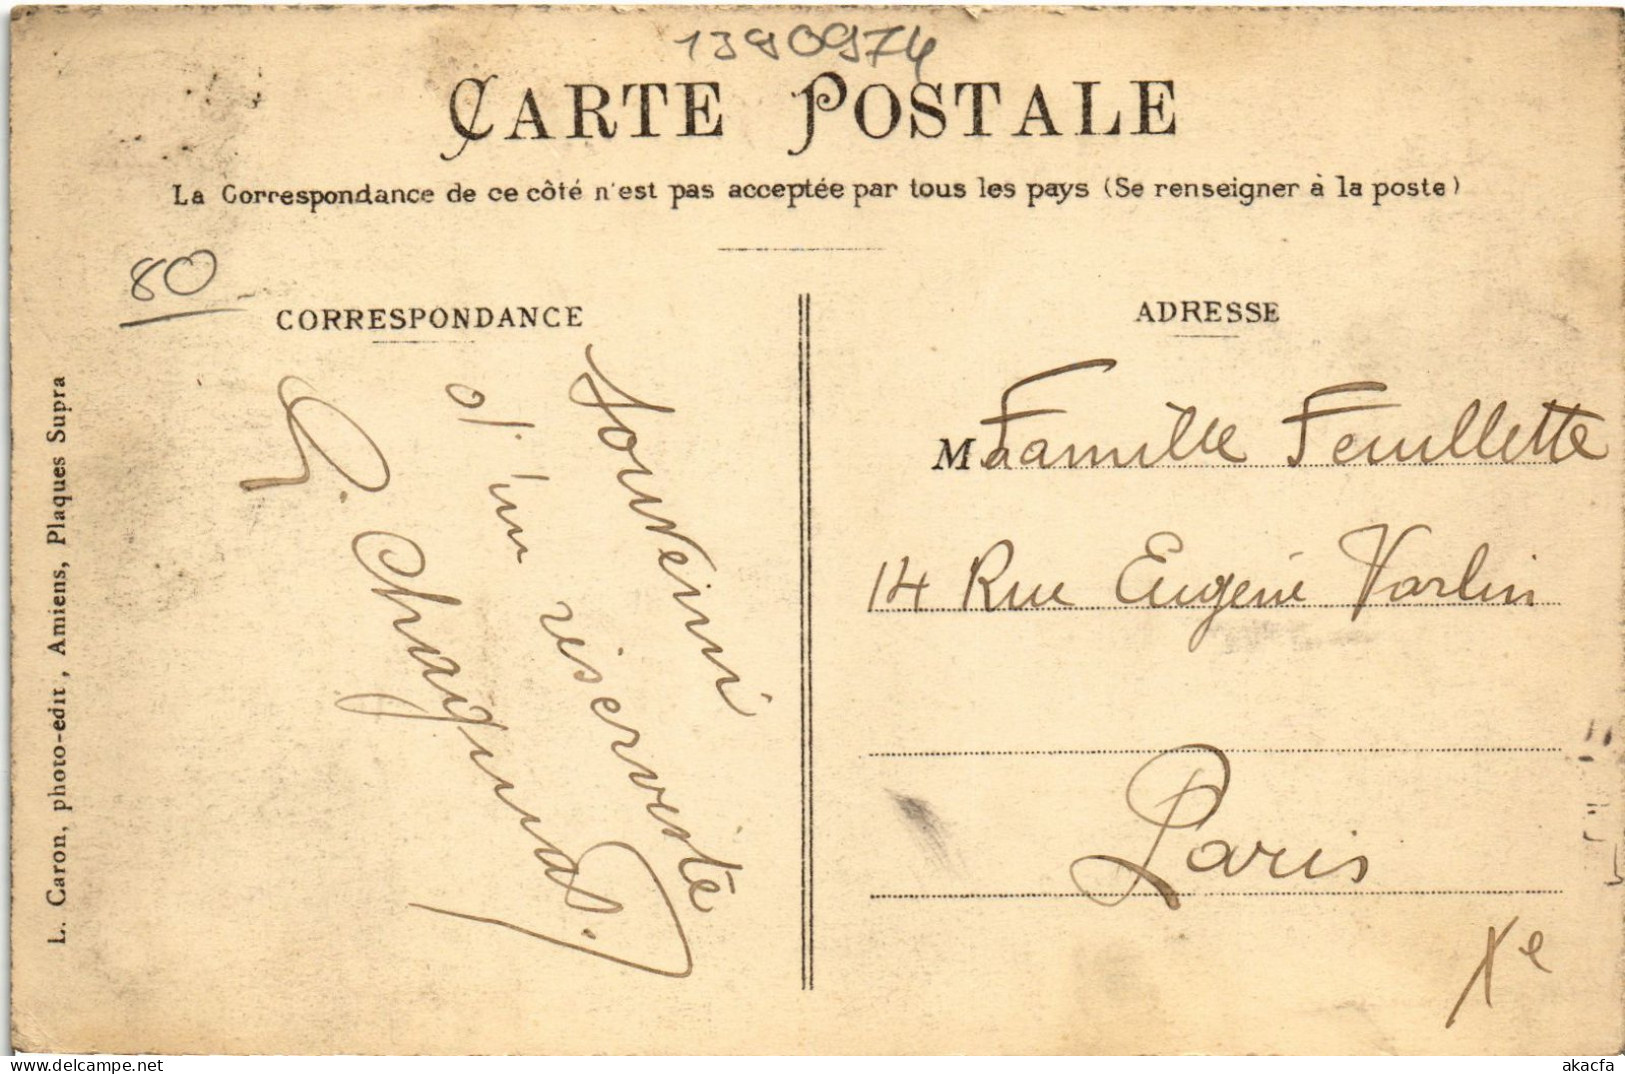 1390974
CARTE POSTALE
La Correspondance de ce côté n'est pas acceptée par tous les pays (Se renseigner à la poste)
80
CORRESPONDANCE
Souvenir
d'un réserviste
ADRESSE
M Famille Feuillette
14 Rue Eugène Varlin
Paris
Xe
L. Caron, photo-edit, Amiens, Plaques Supra
akacfa